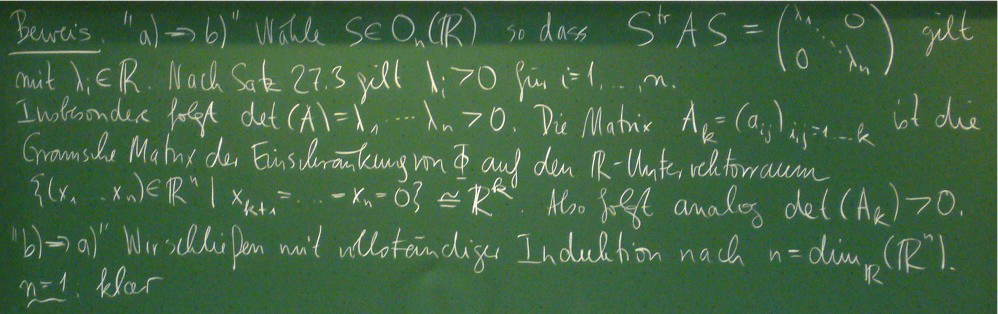 Beweis. "a) ⇒ b)" Wähle S ∈ Oₙ(ℝ) so dass Sᵗʳ A S = (λ₁ 0 ⋱ 0 λₙ) gilt
mit λᵢ ∈ ℝ. Nach Satz 27.3 gilt λᵢ > 0 für i=1,...,n.
Insbesondere folgt det(A) = λ₁ ···· λₙ > 0. Die Matrix A_k = (a_ij)_{i,j=1...k} ist die
Gramsche Matrix der Einschränkung von Φ auf den ℝ-Untervektorraum
{(x₁ ... xₙ) ∈ ℝⁿ | x_{k+1} = .... = xₙ = 0} ≅ ℝᵏ. Also folgt analog det(A_k) > 0.
"b) ⇒ a)" Wir schließen mit vollständiger Induktion nach n = dim_ℝ(ℝⁿ).
n=1. klar